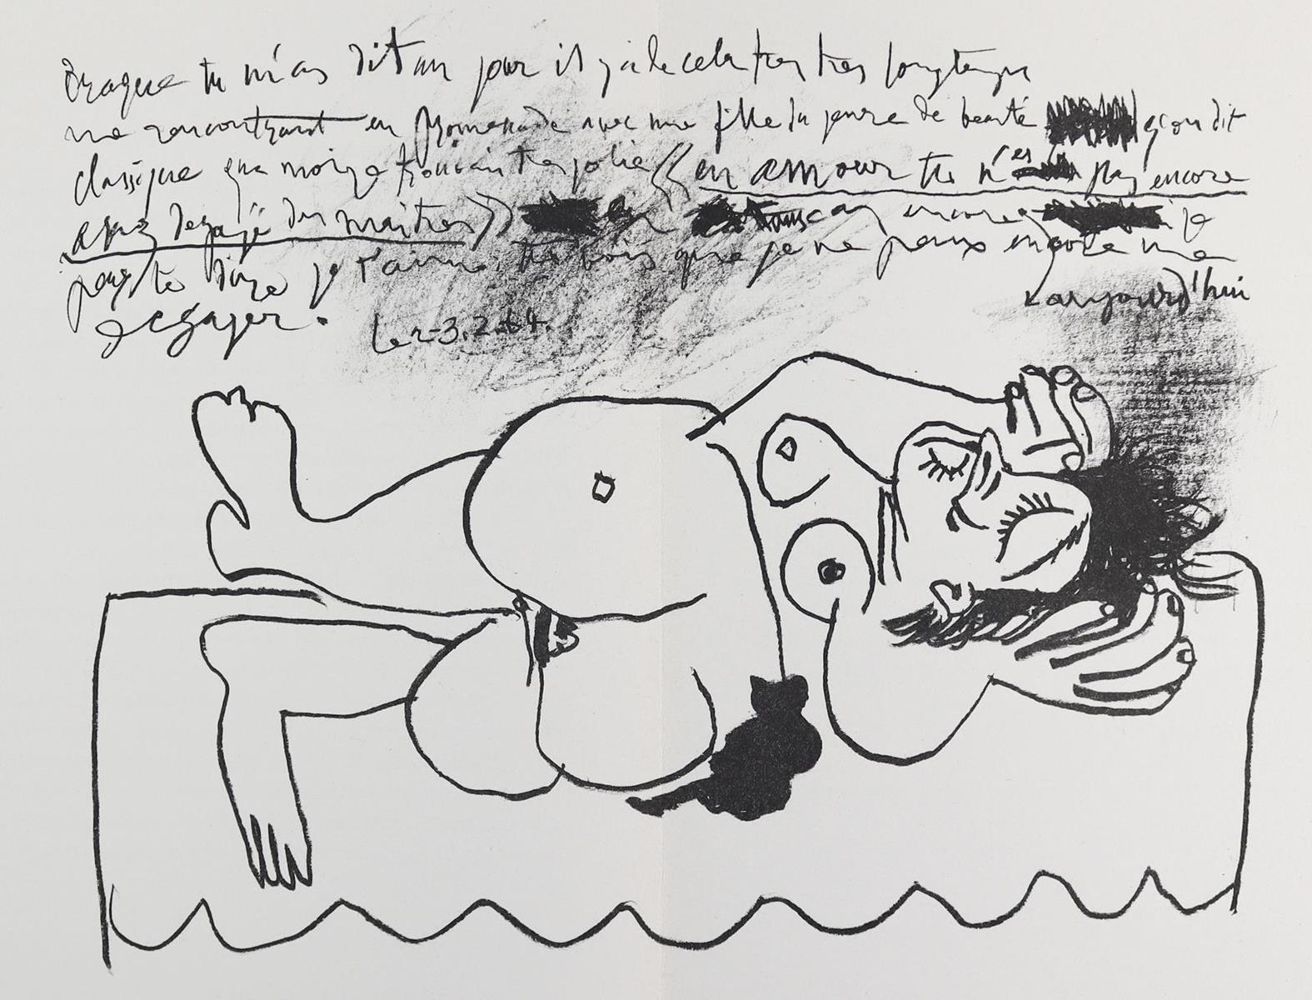 Braque tu m'as dit un jour il y a de cela très très longtemps
me rencontrant en promenade avec une fille du genre de beauté qu'on dit
classique que moi je trouvais très jolie « en amour tu n'es pas encore
assez dégagé des maîtres » encore je
puis te dire je t'aime tu vois que je ne peux encore me
aujourd'hui
dégager. Le 2-3.2.64.